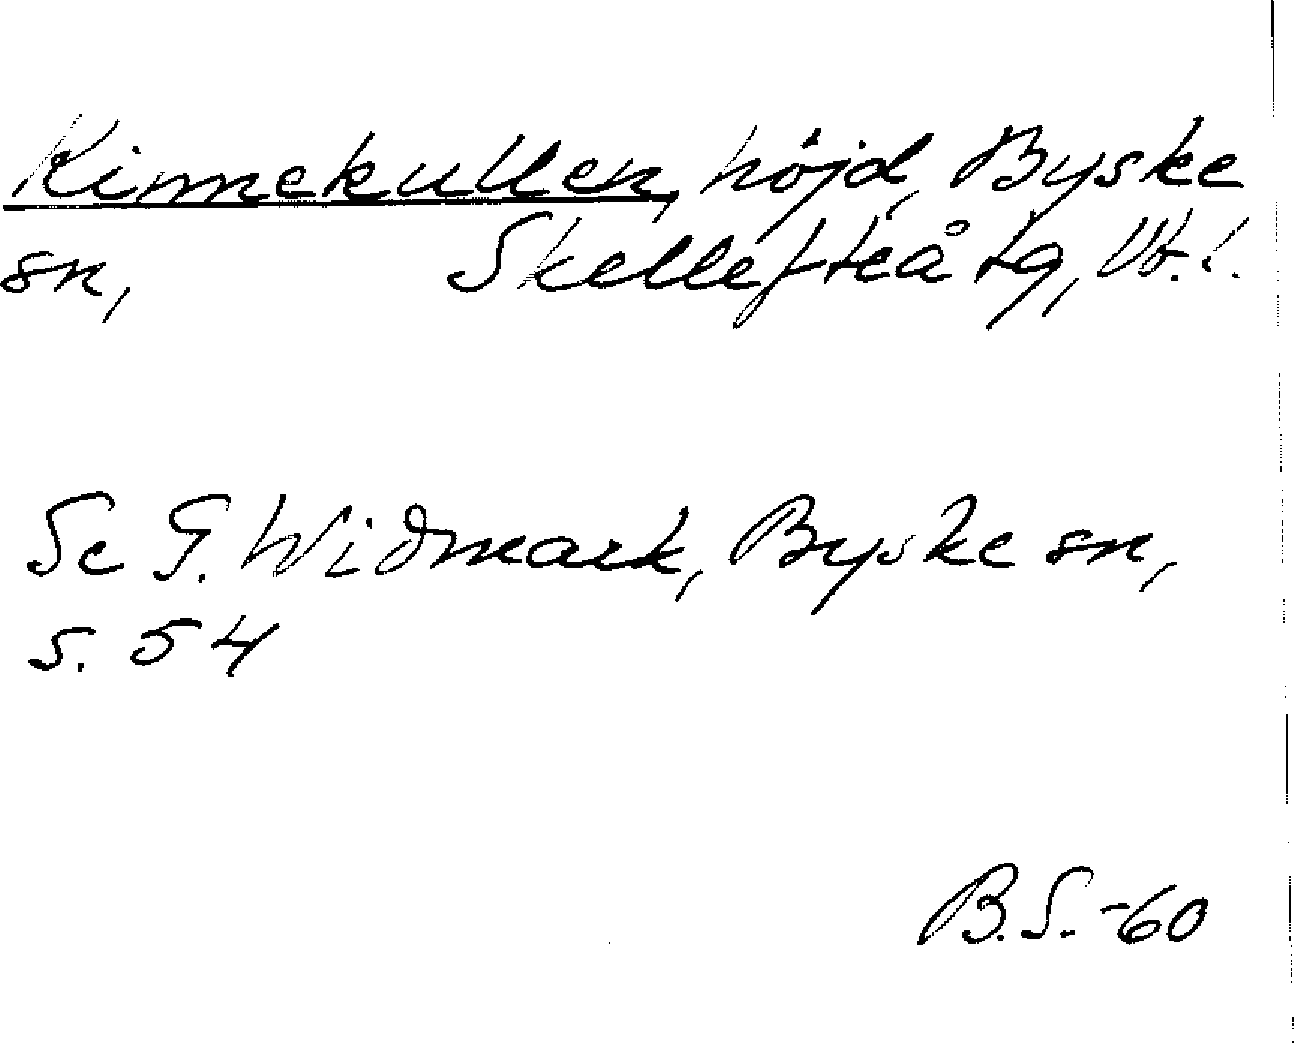 Kinnekullen, höjd, Byske
sn, Skellefteå tg, Vb.l.
Se G. Widmark, Byske sn,
s. 54
B.S. -60